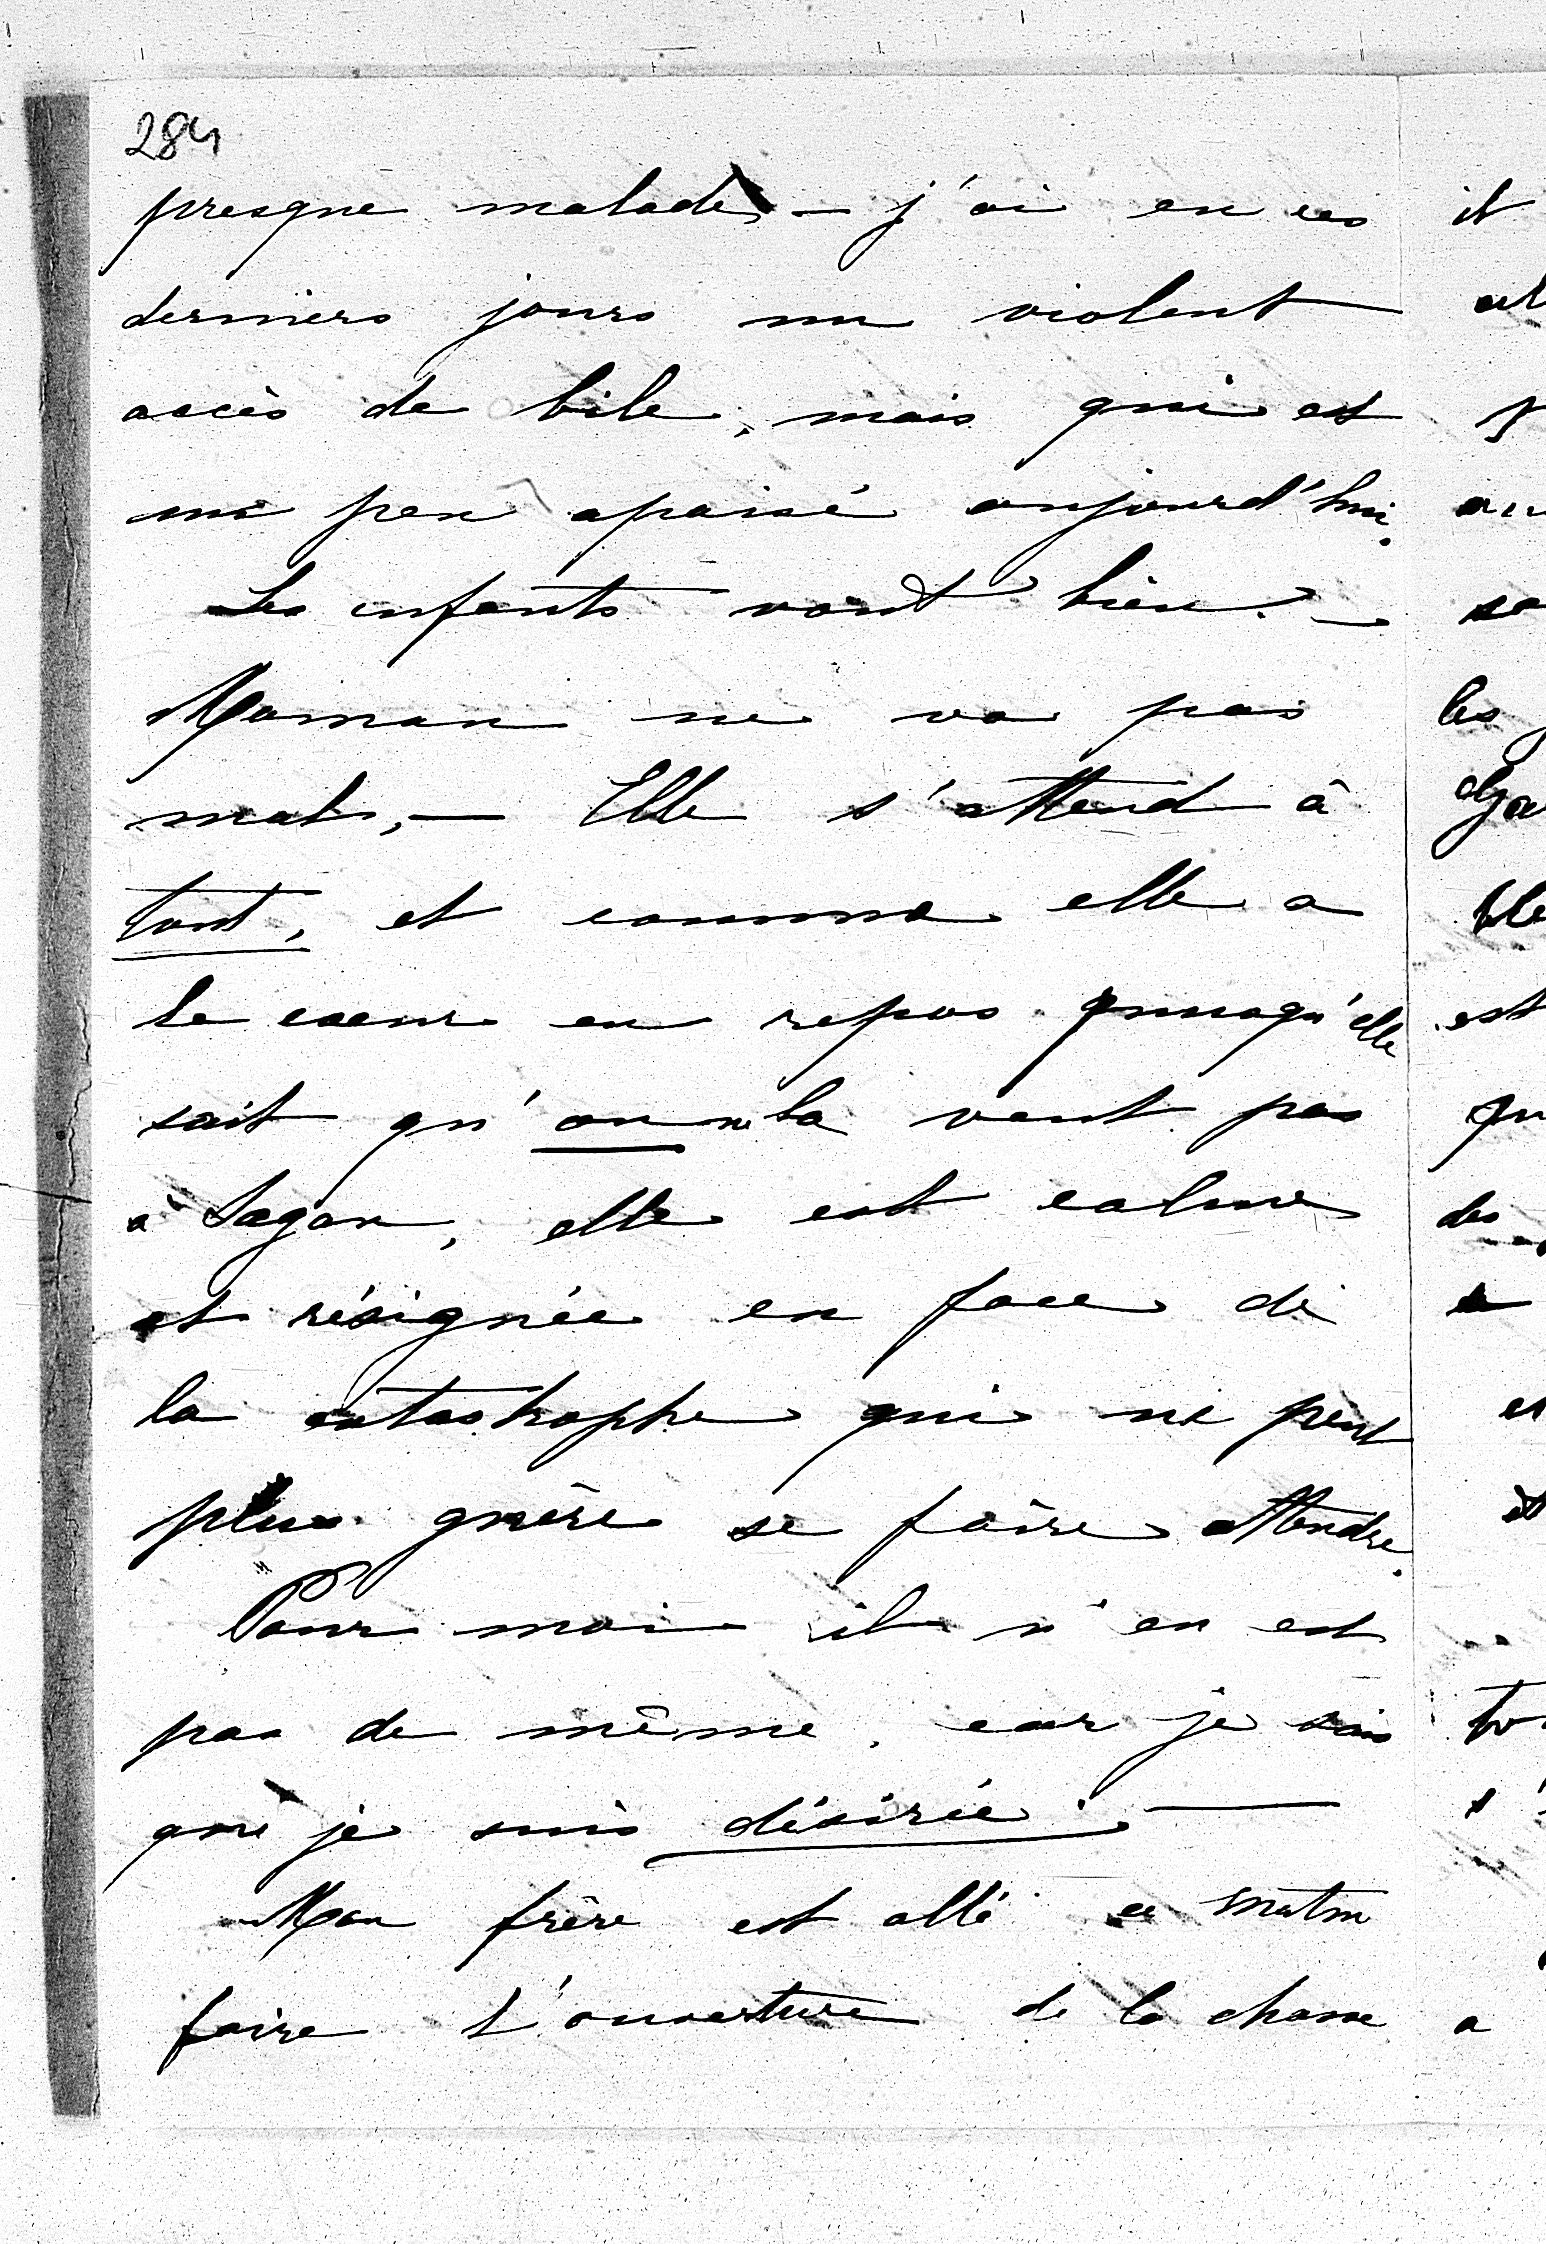 284
presque malade, — j'ai eu ces
derniers jours un violent
accès de bile, mais qui est
un peu apaisé aujourd'hui.
Les enfants vont bien. —
Maman ne va pas
mal, — Elle s'attend à
tout, et comme elle a
le coeur en repos puisqu'elle
sait qu'on ne la veut pas
à Sagan, elle est calme
et résignée en face de
la catastrophe qui ne peut
plus guère se faire attendre.
Pour moi il n'en est
pas de même, car je sais
que je suis désirée. —
Mon frère est allé ce matin
faire l'ouverture de la chasse
it
les
est
des
a